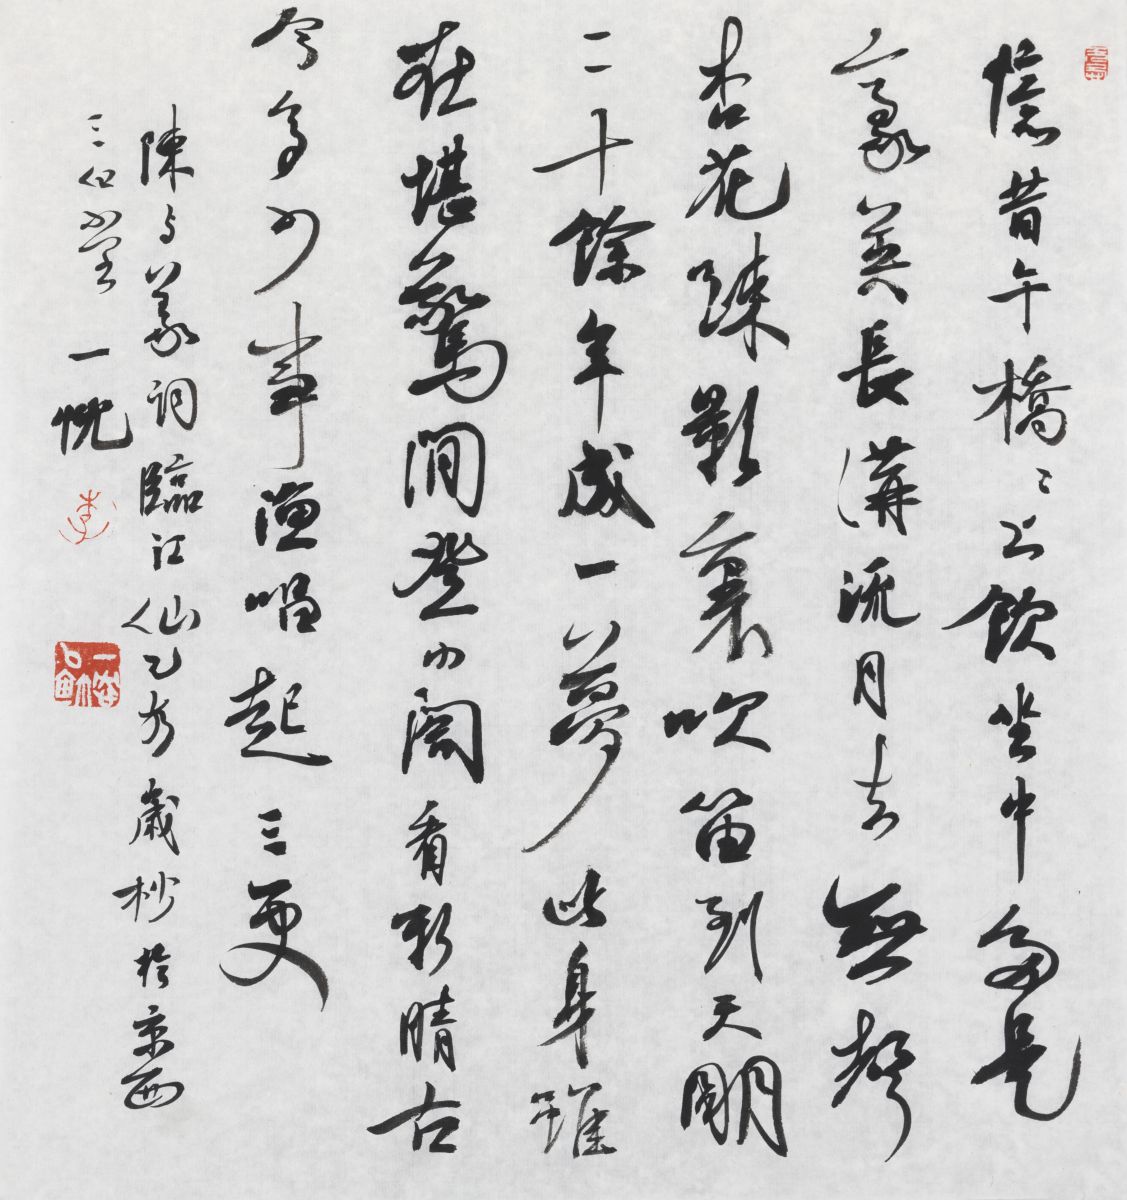 憶昔午橋〻上飲坐中多是
豪英長溝流月去無聲
杏花疎影裏吹笛到天明
二十餘年成一夢此身雖
在堪驚閒登小閣看新晴古
今多少事漁唱起三更
陳与義詞臨江仙乙未歲杪於京西
三伯堂一忱